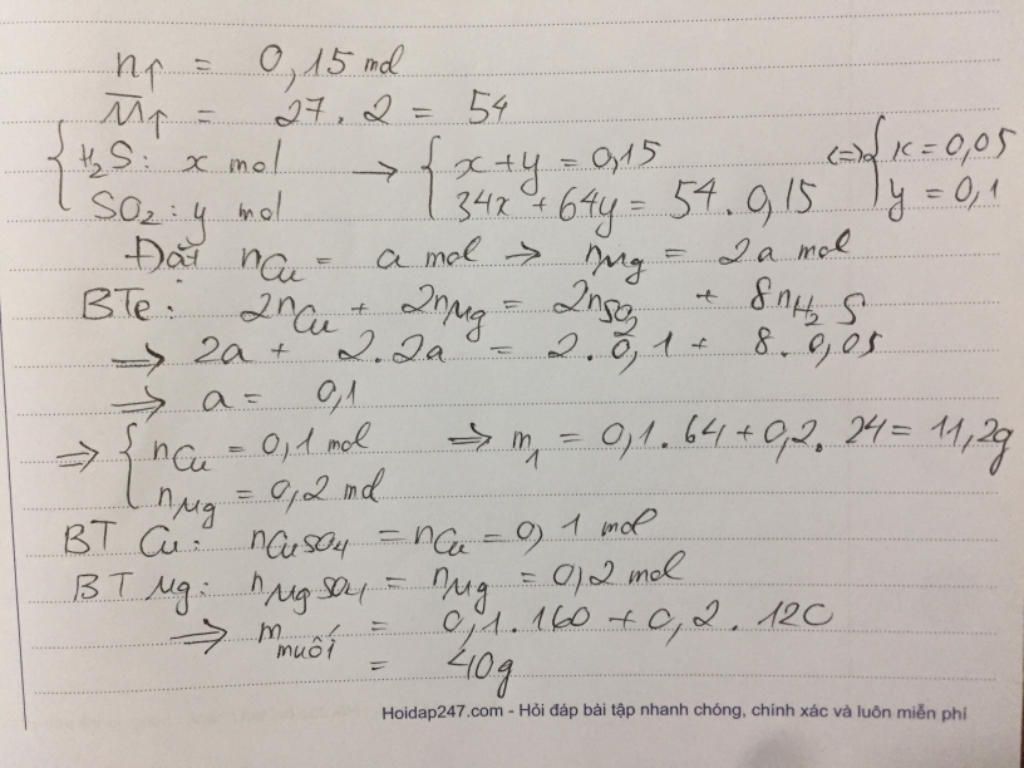 n↑ = 0,15 mol
M̅↑ = 27.2 = 54
{ H₂S: x mol → { x + y = 0,15 <=> { x = 0,05
SO₂: y mol 34x + 64y = 54.0,15 y = 0,1
Đặt nCu = a mol → nMg = 2a mol
BTe: 2nCu + 2nMg = 2nSO₂ + 8nH₂S
=> 2a + 2.2a = 2.0,1 + 8.0,05
=> a = 0,1
=> { nCu = 0,1 mol => m₁ = 0,1.64 + 0,2.24 = 11,2g
nMg = 0,2 mol
BT Cu: nCuSO₄ = nCu = 0,1 mol
BT Mg: nMgSO₄ = nMg = 0,2 mol
=> m muối = 0,1.160 + 0,2.120
= 40g
Hoidap247.com - Hỏi đáp bài tập nhanh chóng, chính xác và luôn miễn phí